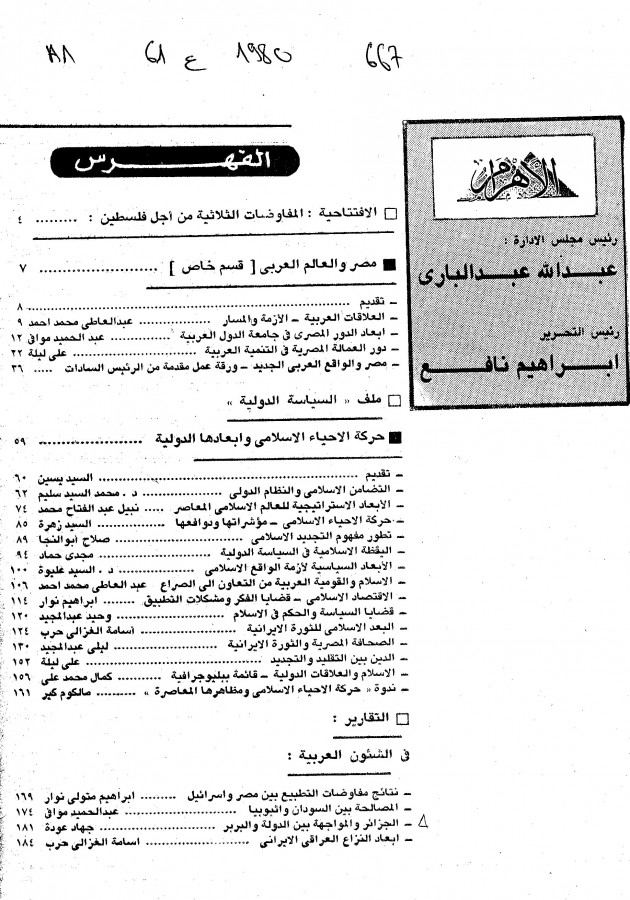 A1 61 ع 1980 667
الأهرام
رئيس مجلس الادارة :
عبدالله عبدالبارى
رئيس التحرير
ابراهيم نافع
الفهرس
□ الافتتاحية : المفاوضات الثلاثية من أجل فلسطين : ......... ٤
■ مصر والعالم العربى [ قسم خاص ] ........................ ٧
ـ تقديم ........................ ٨
ـ العلاقات العربية ـ الأزمة والمسار ................ عبدالعاطى محمد احمد ٩
ـ ابعاد الدور المصرى فى جامعة الدول العربية ............. عبد الحميد موافى ١٢
ـ دور العمالة المصرية فى التنمية العربية ................ على ليلة ٢٢
ـ مصر والواقع العربى الجديد ـ ورقة عمل مقدمة من الرئيس السادات ..... ٣٦
□ ملف « السياسة الدولية »
■ حركة الاحياء الاسلامى وابعادها الدولية ...................... ٥٩
ـ تقديم ........................ السيد يسين ٦٠
ـ التضامن الاسلامى والنظام الدولى ............. د . محمد السيد سليم ٦٢
ـ الأبعاد الاستراتيجية للعالم الاسلامى المعاصر ..... نبيل عبد الفتاح محمد ٧٤
ـ حركة الاحياء الاسلامى ـ مؤشراتها ودوافعها ................ السيد زهرة ٨٥
ـ تطور مفهوم التجديد الاسلامى ................ صلاح أبوالنجا ٨٩
ـ اليقظة الاسلامية فى السياسة الدولية ................ مجدى حماد ٩٤
ـ الأبعاد السياسية لأزمة الواقع الاسلامى ............. د . السيد عليوة ١٠٠
ـ الاسلام والقومية العربية من التعاون الى الصراع عبد العاطى محمد احمد ١٠٦
ـ الاقتصاد الاسلامى ـ قضايا الفكر ومشكلات التطبيق ........ ابراهيم نوار ١١٤
ـ قضايا السياسة والحكم فى الاسلام ............. وحيد عبدالمجيد ١٢٠
ـ البعد الاسلامى للثورة الايرانية ................ أسامة الغزالى حرب ١٢٤
ـ الصحافة المصرية والثورة الايرانية ................ ليلى عبدالمجيد ١٣٠
ـ الدين بين التقليد والتجديد ........................ على ليلة ١٥٢
ـ الاسلام والعلاقات الدولية ـ قائمة ببليوجرافية ............ كمال محمد على ١٥٦
ـ ندوة « حركة الاحياء الاسلامى ومظاهرها المعاصرة » .......... مالكوم كير ١٦١
□ التقارير :
فى الشئون العربية :
ـ نتائج مفاوضات التطبيع بين مصر واسرائيل ......... ابراهيم متولى نوار ١٦٩
ـ المصالحة بين السودان واثيوبيا ................ عبدالحميد موافى ١٧٤
ـ الجزائر والمواجهة بين الدولة والبربر ................ جهاد عودة ١٨١
ـ ابعاد النزاع العراقى الايرانى ................ اسامة الغزالى حرب ١٨٤